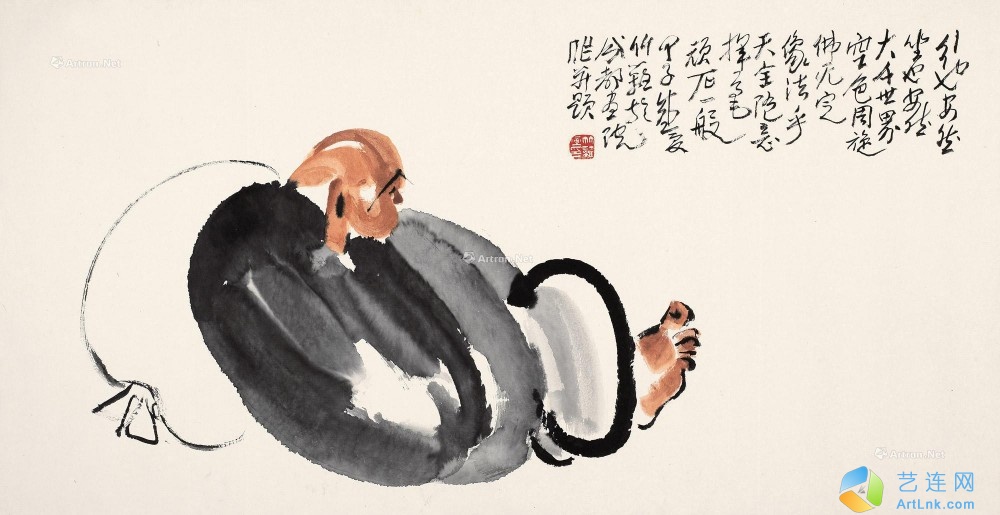 行也安然
坐也安然
大千世界
空色周旋
佛无定
像法乎
天全随意
挥毫
顽石一般
甲子
竹
成都画院
题
Artron.Net
Artron.Net
Artron.Net
艺连网
ArtLnk.com